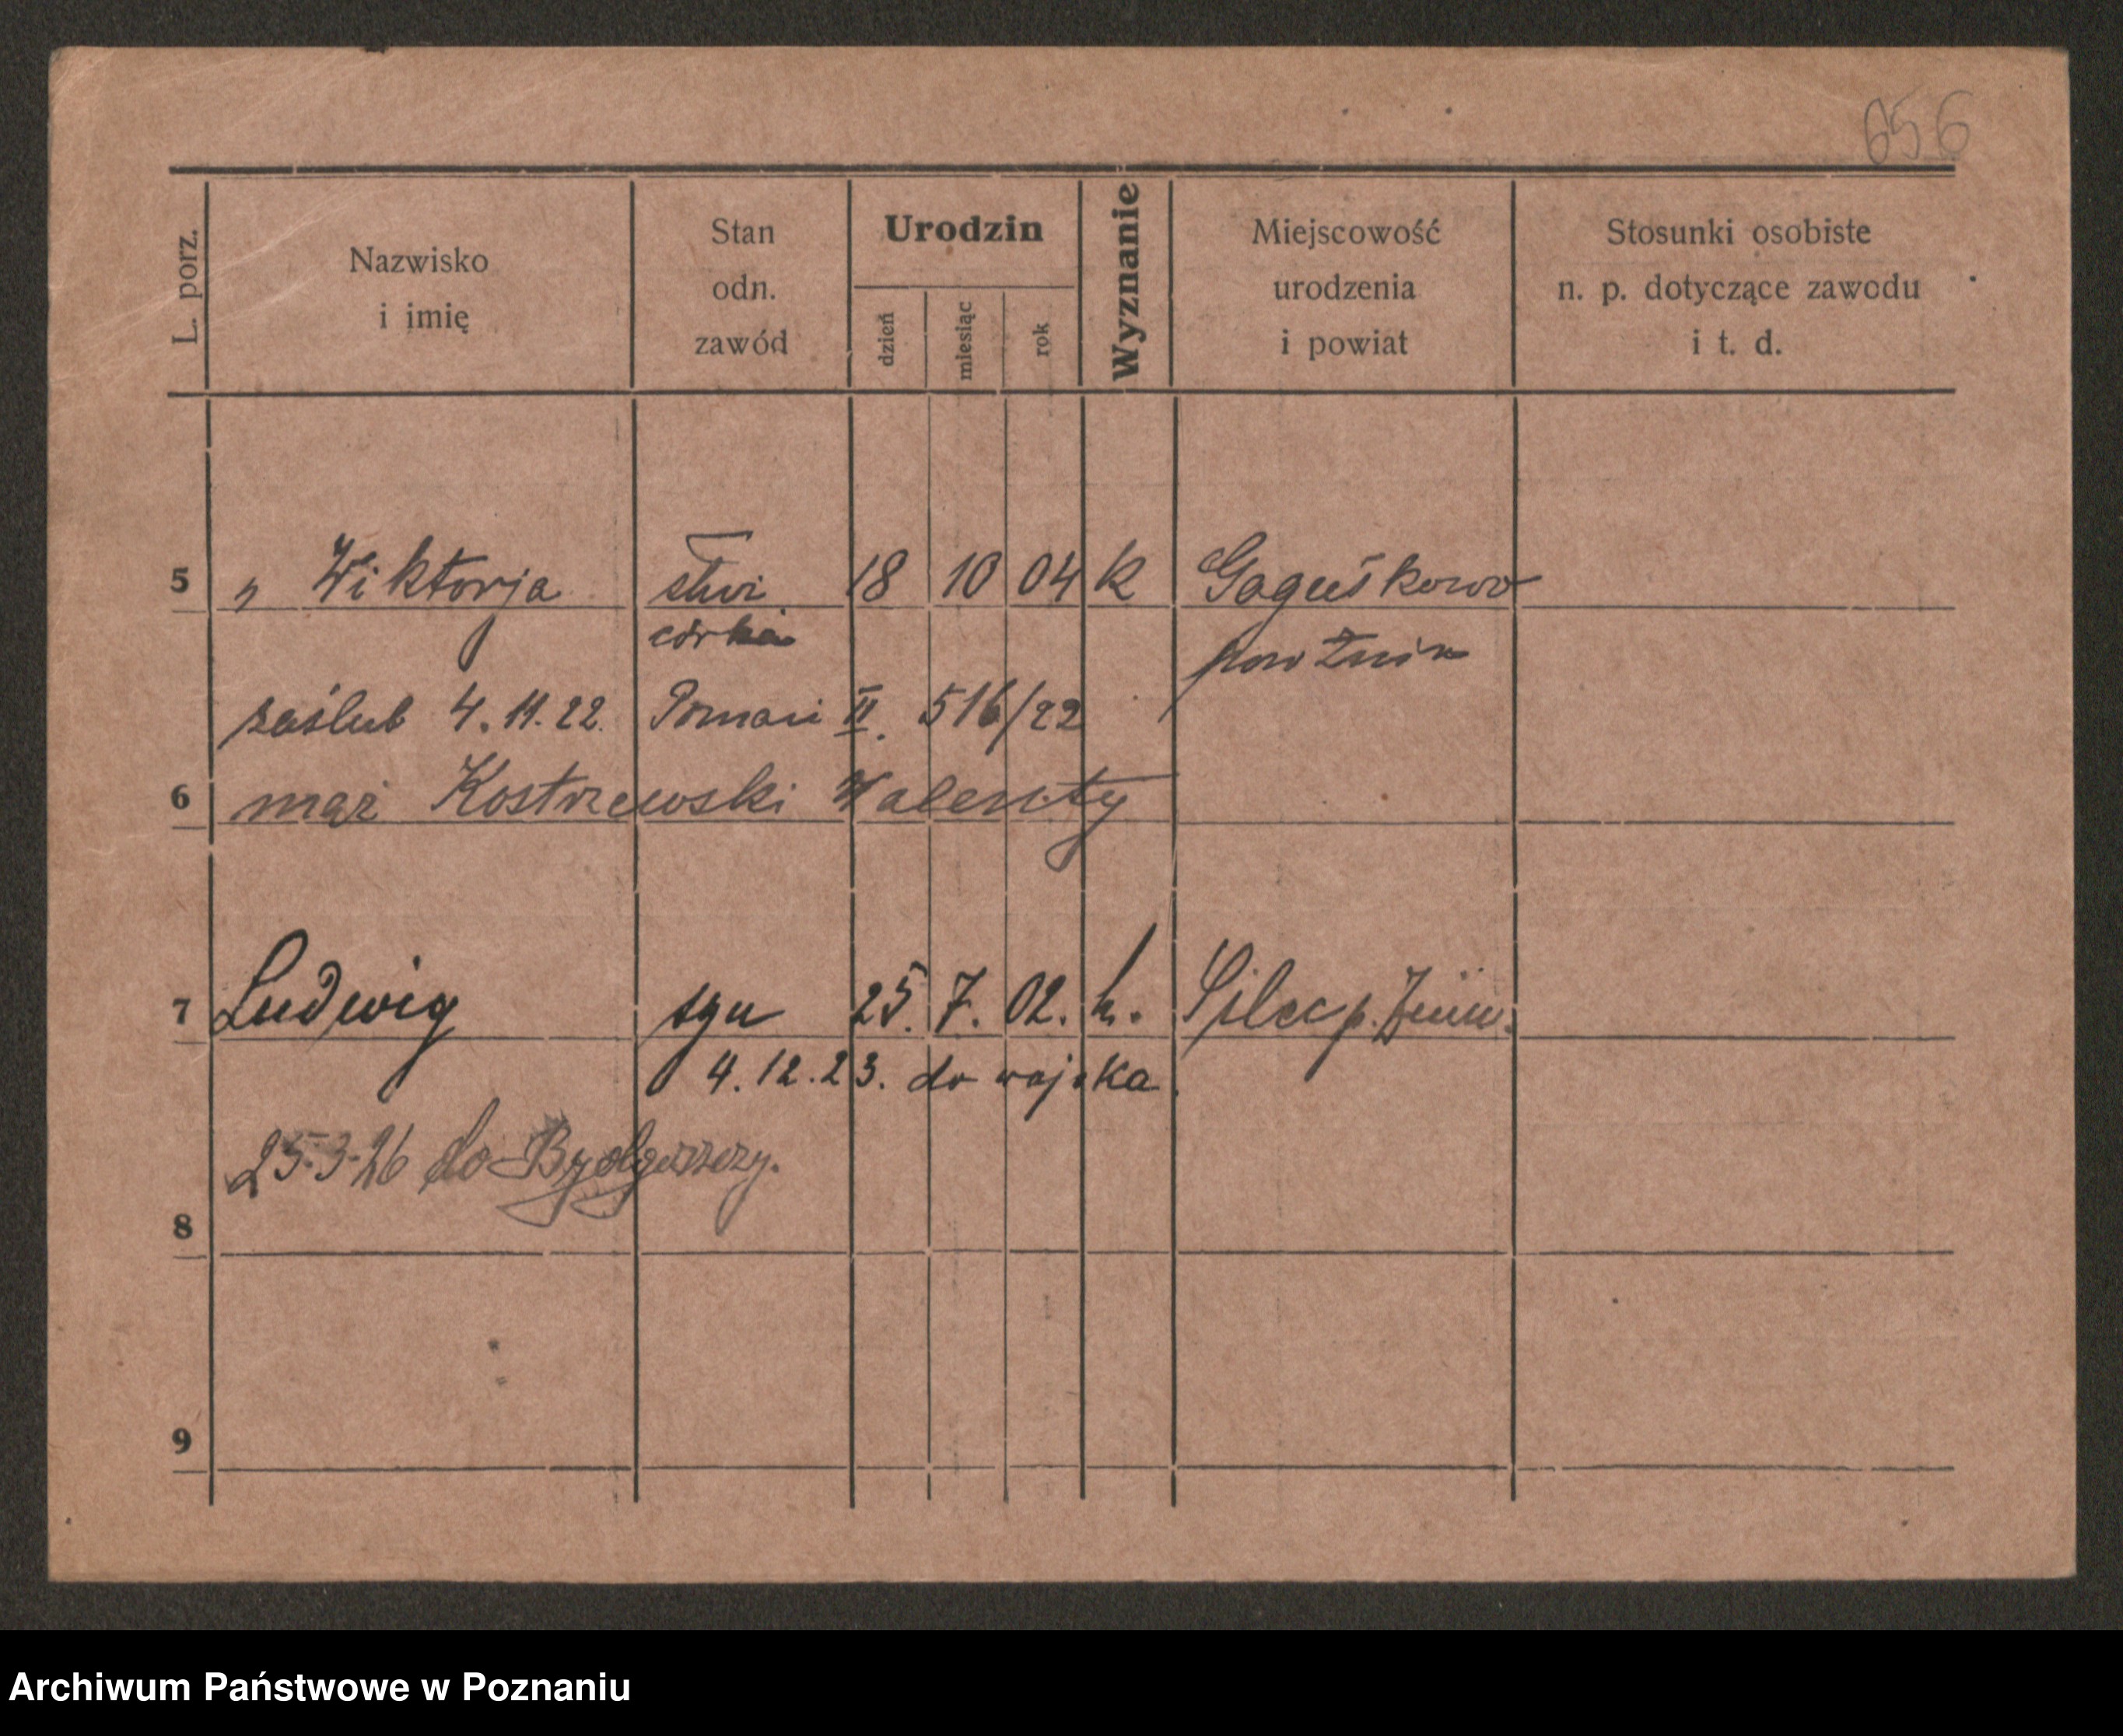 656
L. porz.
Nazwisko
i imię
Stan
odn.
zawód
Urodzin
dzień
miesiąc
rok
Wyznanie
Miejscowość
urodzenia
i powiat
Stosunki osobiste
n. p. dotyczące zawodu
i t. d.
5 „ Wiktorja 18 10 04 k
córka pow Żnin
zaślub 4.11.22. Poznań II. 516/22
6 mąż Kostrzewski Walenty
7 Ludwig syn 25. 7. 02. k. p. Żnin.
4.12.23. do wojska
25-3-26 do Bydgoszczy.
8
9
Archiwum Państwowe w Poznaniu